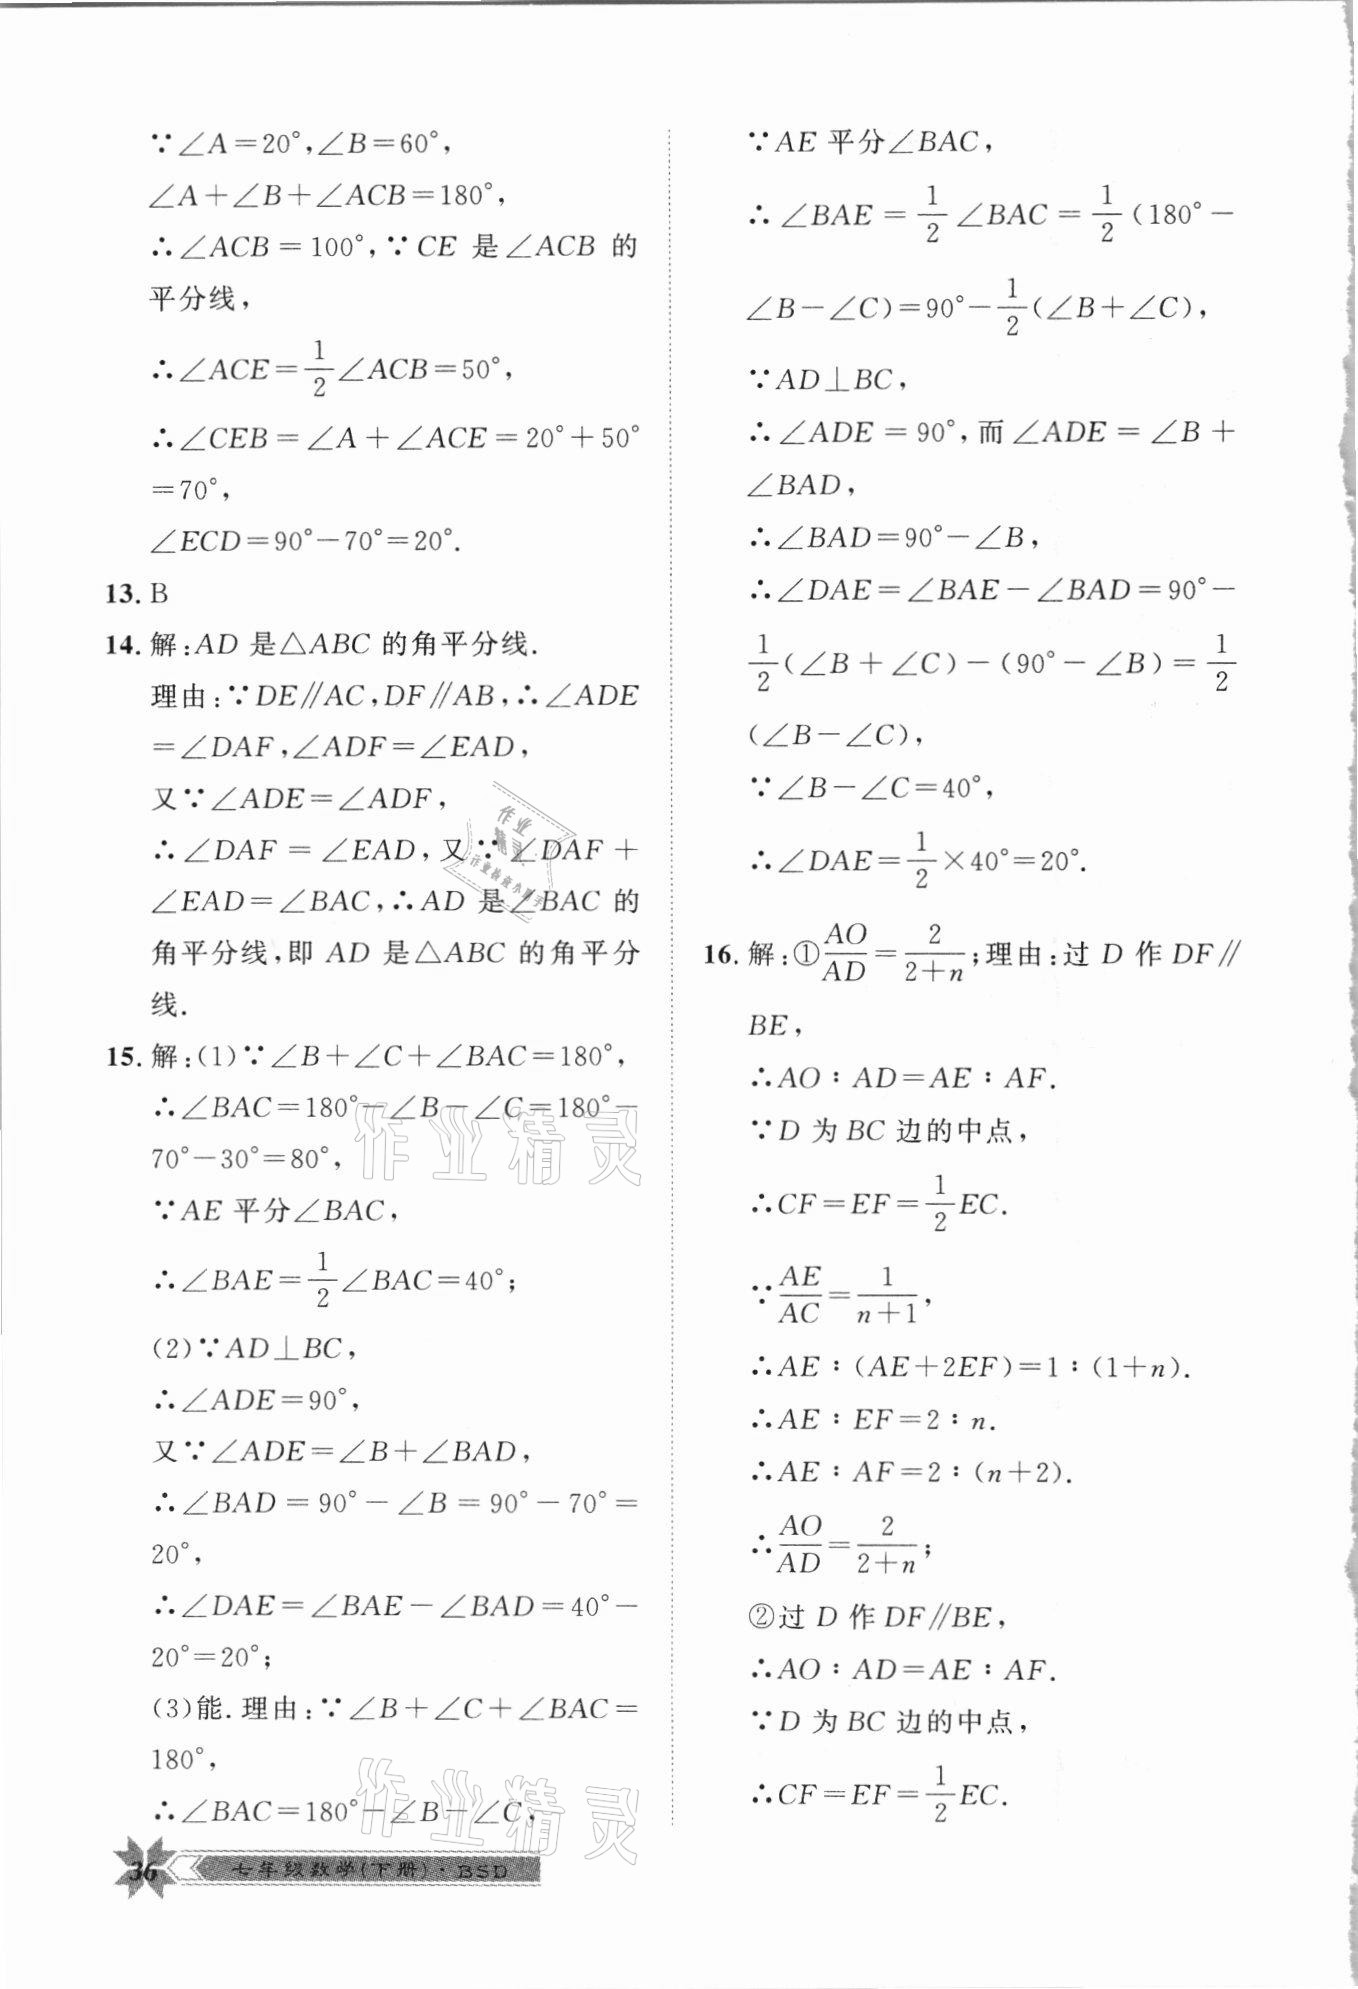 ∵∠A=20°,∠B=60°,
∠A+∠B+∠ACB=180°,
∴∠ACB=100°,∵CE 是∠ACB 的
平分线,
∴∠ACE=1/2∠ACB=50°,
∴∠CEB=∠A+∠ACE=20°+50°
=70°,
∠ECD=90°-70°=20°.
13. B
14. 解:AD 是△ABC 的角平分线.
理由:∵DE∥AC,DF∥AB,∴∠ADE
=∠DAF,∠ADF=∠EAD,
又∵∠ADE=∠ADF,
∴∠DAF=∠EAD,又∵∠DAF+
∠EAD=∠BAC,∴AD 是∠BAC 的
角平分线,即 AD 是△ABC 的角平分
线.
15. 解:(1)∵∠B+∠C+∠BAC=180°,
∴∠BAC=180°-∠B-∠C=180°-
70°-30°=80°,
∵AE 平分∠BAC,
∴∠BAE=1/2∠BAC=40°;
(2)∵AD⊥BC,
∴∠ADE=90°,
又∵∠ADE=∠B+∠BAD,
∴∠BAD=90°-∠B=90°-70°=
20°,
∴∠DAE=∠BAE-∠BAD=40°-
20°=20°;
(3)能.理由:∵∠B+∠C+∠BAC=
180°,
∴∠BAC=180°-∠B-∠C,
∵AE 平分∠BAC,
∴∠BAE=1/2∠BAC=1/2(180°-
∠B-∠C)=90°-1/2(∠B+∠C),
∵AD⊥BC,
∴∠ADE=90°,而∠ADE=∠B+
∠BAD,
∴∠BAD=90°-∠B,
∴∠DAE=∠BAE-∠BAD=90°-
1/2(∠B+∠C)-(90°-∠B)=1/2
(∠B-∠C),
∵∠B-∠C=40°,
∴∠DAE=1/2×40°=20°.
16. 解:①AO/AD=2/(2+n);理由:过 D 作 DF∥
BE,
∴AO∶AD=AE∶AF.
∵D 为 BC 边的中点,
∴CF=EF=1/2EC.
∵AE/AC=1/(n+1),
∴AE∶(AE+2EF)=1∶(1+n).
∴AE∶EF=2∶n.
∴AE∶AF=2∶(n+2).
∴AO/AD=2/(2+n);
②过 D 作 DF∥BE,
∴AO∶AD=AE∶AF.
∵D 为 BC 边的中点,
∴CF=EF=1/2EC.
36 七年级数学(下册)·BSD
作业精灵
作业精灵
作业
作业检查小助手